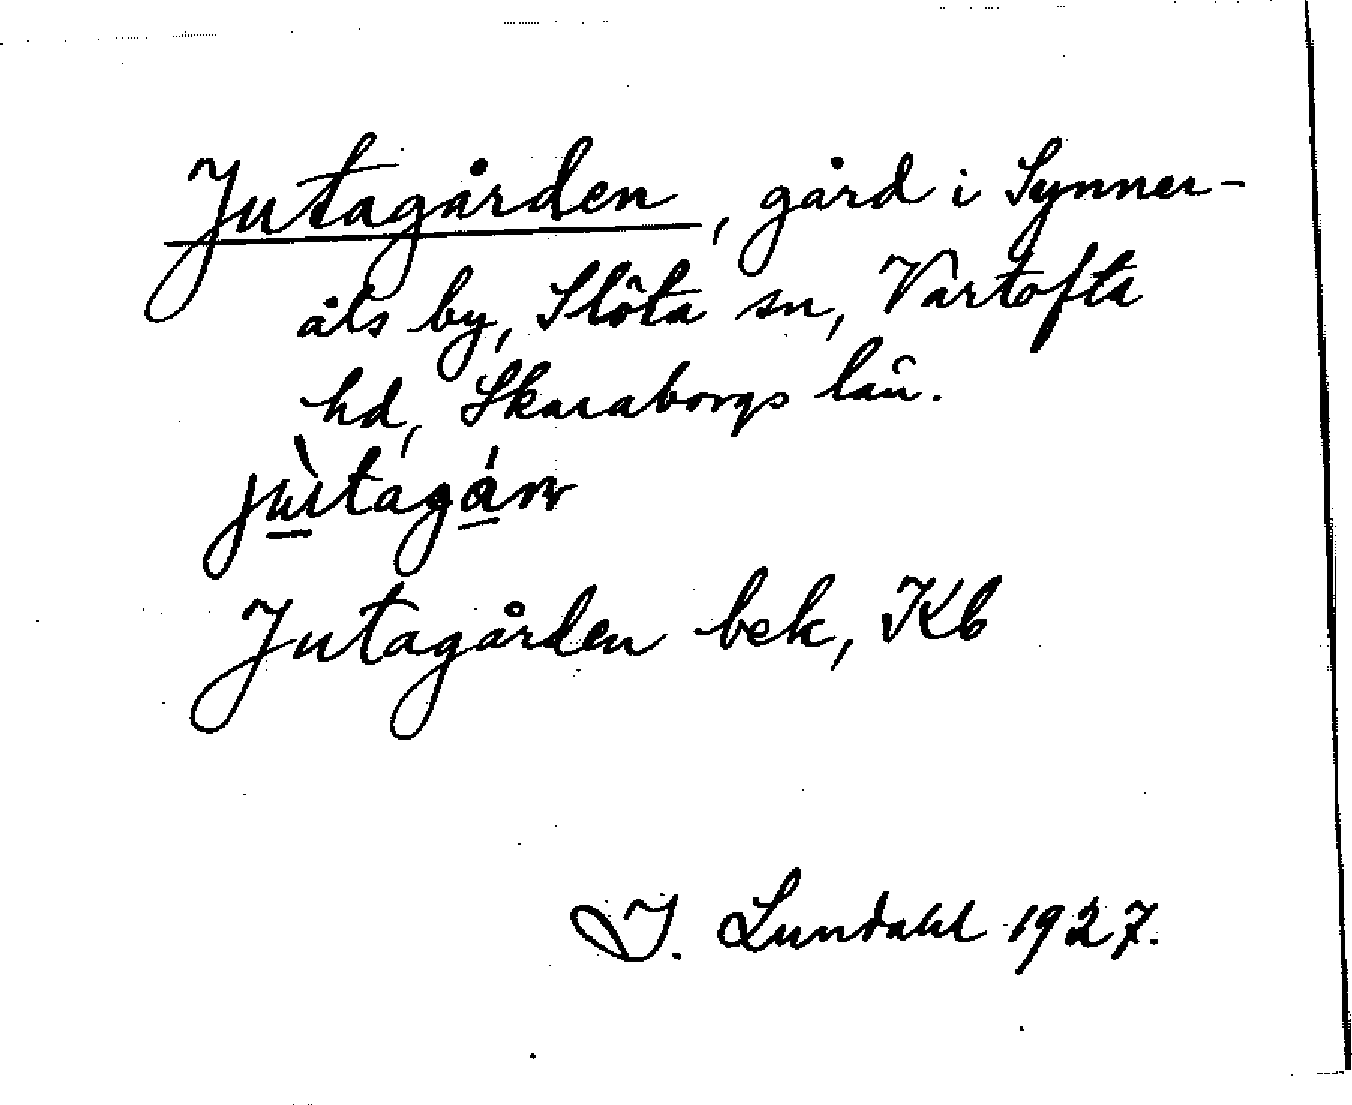 Jutagården, gård i Synner-
åls by, Slöta sn, Vartofta
hd, Skaraborgs län.
Jutagården bek, Kb
I. Lundahl 1927.